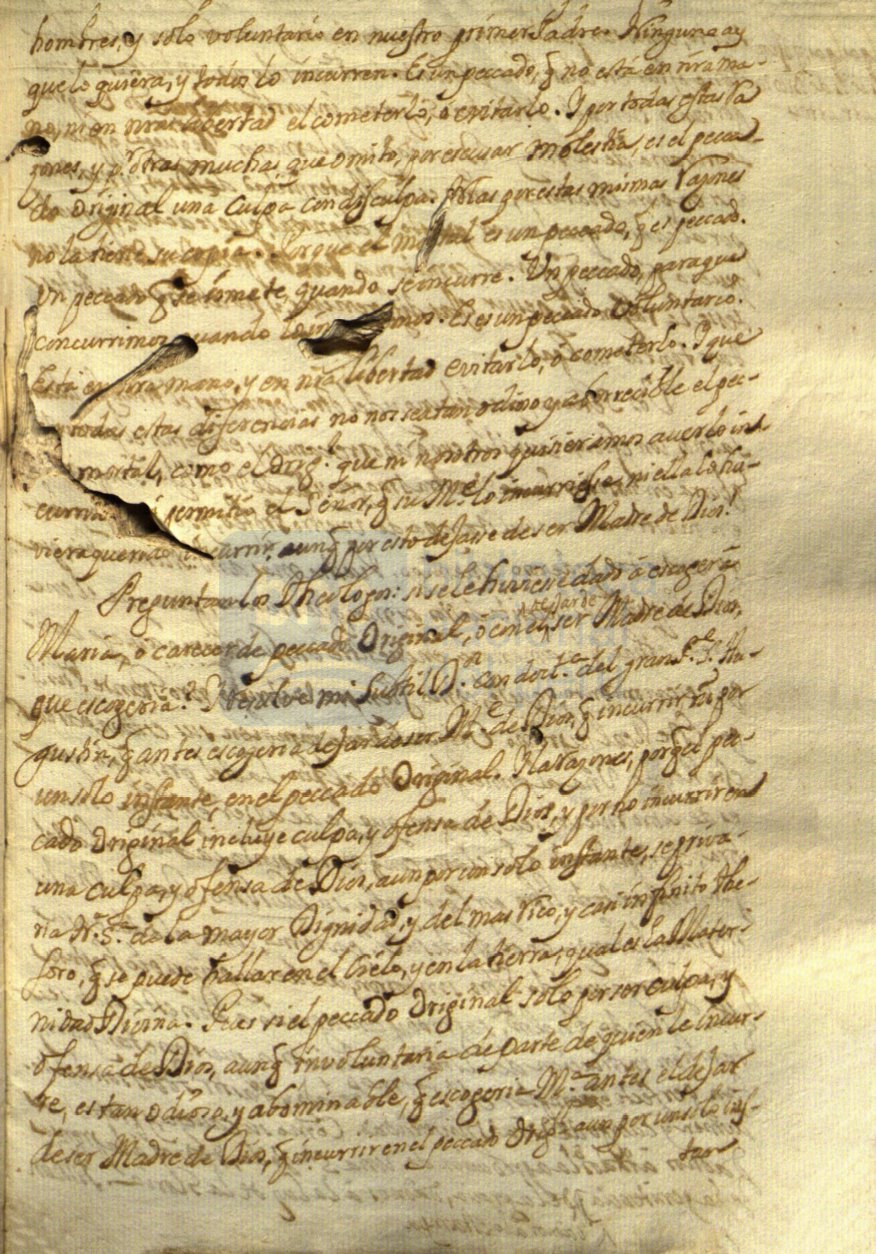 hombres, y solo voluntario en nuestro primer Padre. Ninguno ay
que lo quiera, y todos lo incurren. Es un peccado, q̃ no está en nr̃a ma-
no, ni en nr̃a libertad el cometerlo, ó evitarlo. Y por todas estas ra
zones, y pr. otras muchas que omito, por escusar molestia, es el pecca-
do Original una culpa con disculpa. Mas por estas mismas razones
no la tiene su copia. Porque el mortal es un peccado, q̃ es peccado.
Un peccado q̃ se comete, quando se incurre. Un peccado, para que
concurrimos quando lo mos. Es es un peccado voluntario.
Está en nr̃a mano, y en nr̃a libertad evitarlo, ó cometerlo. Y que
todas estas diferencias no nos sea tan odioso y aborrecible el pec-
mortal, como el Orig.l que ni nosotros quisieramos averlo in
currido permitió el Señor, q̃ su M.e lo incurriesse, ni ella lo hu-
viera querido incurrir, aunq̃ por esto dejasse de ser Madre de Dios!
Preguntan los Theologos: si se le huviesse dado á escoger á
Maria, ó carecer de peccado Original, ó en el dejar de ser Madre de Dios,
que escogeria? Y resuelve mi Subtil D.r con doct.a del gran P.e S. Au-
gustin, q̃ antes escogeria dejar de ser M.e de Dios, q̃ incurrir por
un solo instante, en el peccado Original. Y la razon es, porq̃ el pec-
cado Original incluye culpa, y ofensa de Dios, y por no incurrir en
una culpa, y ofensa de Dios, aun por un solo instante, se priva-
ria N.a S.a de la mayor Dignidad, y del mas rico, y casi infinito the-
soro, q̃ se puede hallar en el Cielo, y en la tierra, qual es la Mater-
nidad Divina. Pues si el peccado Original solo por ser culpa, y
ofensa de Dios, aunq̃ involuntaria de parte de quien le incur-
re, es tan odioso, y abominable, q̃ escogeria M.a antes el dejar
de ser Madre de Dios, q̃ incurrir en el peccado Orig.l aun por un solo ins-
tan